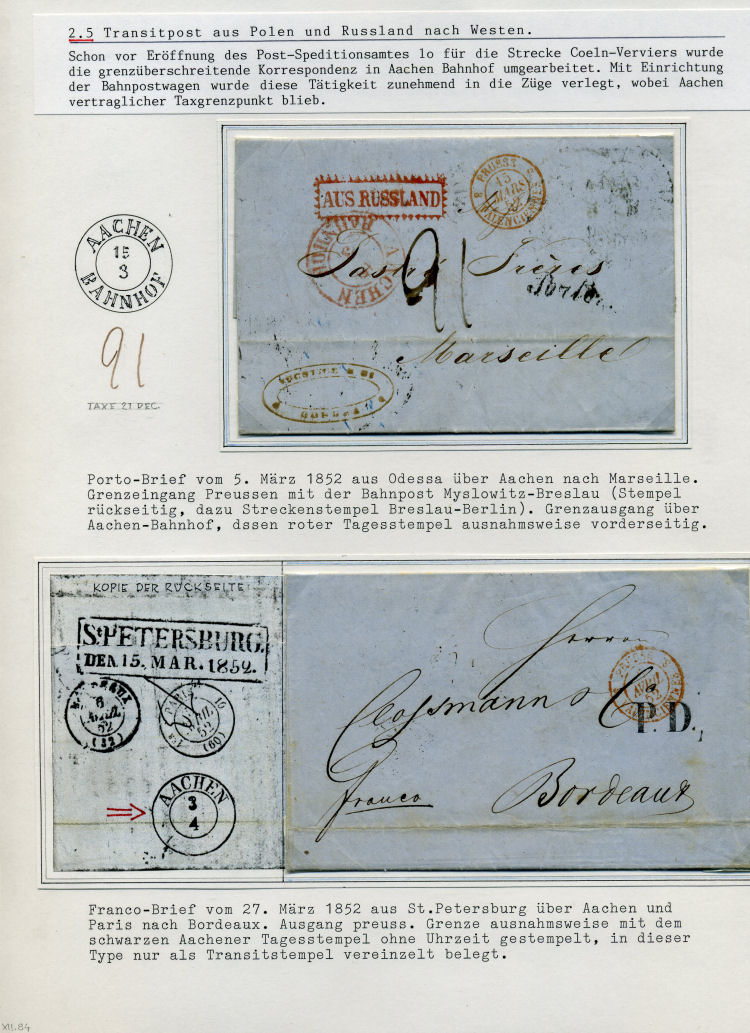 2.5 Transitpost aus Polen und Russland nach Westen.
Schon vor Eröffnung des Post-Speditionsamtes 1o für die Strecke Coeln-Verviers wurde
die grenzüberschreitende Korrespondenz in Aachen Bahnhof umgearbeitet. Mit Einrichtung
der Bahnpostwagen wurde diese Tätigkeit zunehmend in die Züge verlegt, wobei Aachen
vertraglicher Taxgrenzpunkt blieb.
AACHEN
15
3
BAHNHOF
91
TAXE 21 DEC.
AUS RUSSLAND
PRUSSE
15
MARS
52
AACHEN
BAHNHOF
91
Frères
Marseille
Porto-Brief vom 5. März 1852 aus Odessa über Aachen nach Marseille.
Grenzeingang Preussen mit der Bahnpost Myslowitz-Breslau (Stempel
rückseitig, dazu Streckenstempel Breslau-Berlin). Grenzausgang über
Aachen-Bahnhof, dssen roter Tagesstempel ausnahmsweise vorderseitig.
KOPIE DER RÜCKSEITE
St.PETERSBURG.
DEN 15. MAR. 1852.
BORDEAUX
6
AVRIL
52
(32)
PARIS
52
(60)
AACHEN
3
4
Herren
Clossmann & Co
P.D.
Franco
Bordeaux
Franco-Brief vom 27. März 1852 aus St.Petersburg über Aachen und
Paris nach Bordeaux. Ausgang preuss. Grenze ausnahmsweise mit dem
schwarzen Aachener Tagesstempel ohne Uhrzeit gestempelt, in dieser
Type nur als Transitstempel vereinzelt belegt.
XII.84